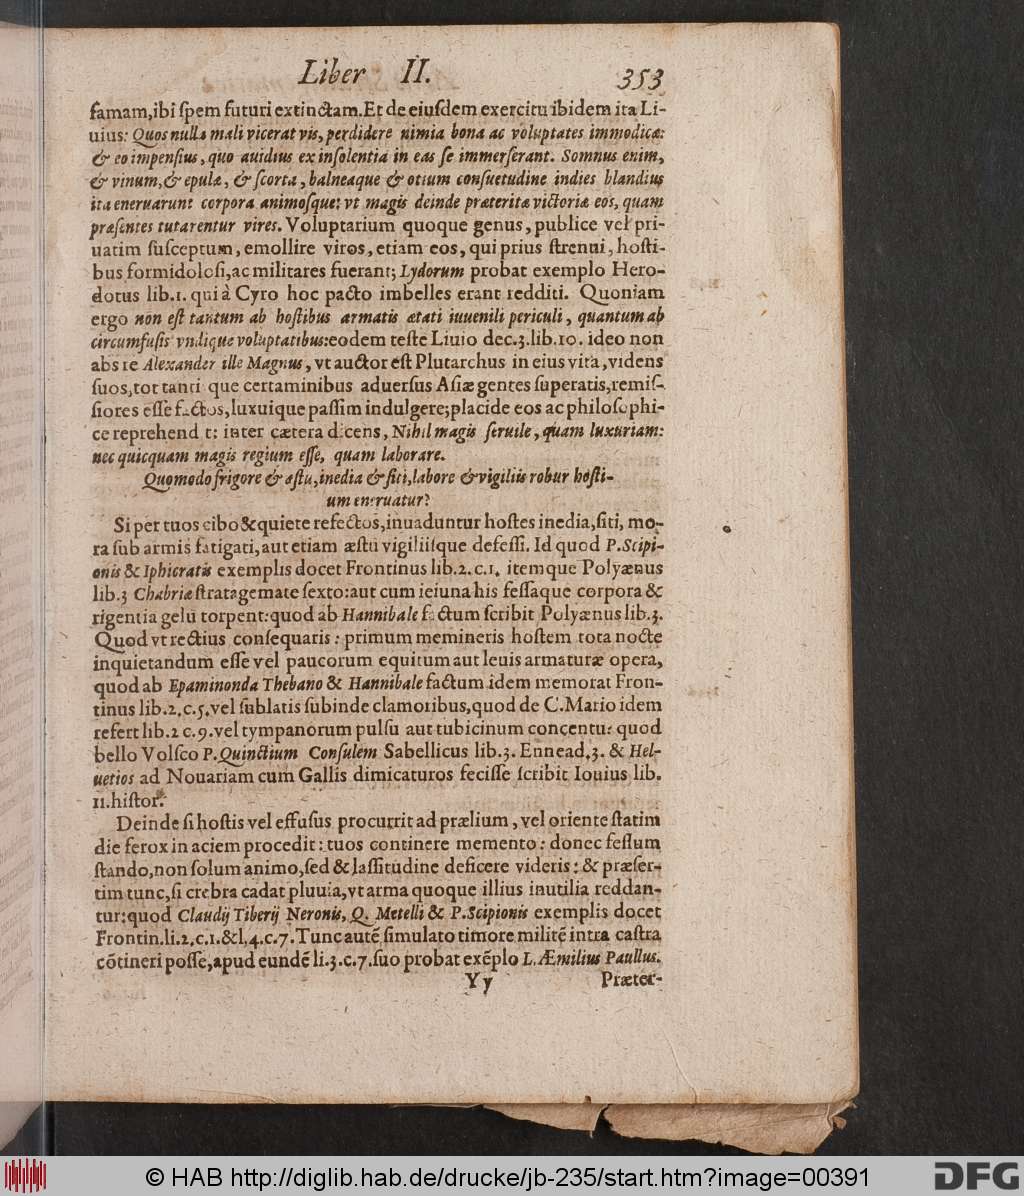 Liber II. 353
famam,ibi ſpem futuri extinctam.Et de eiuſdem exercitu ibidem ita Li-
uius: Quos nulla mali vicerat vis, perdidere nimia bona ac voluptates immodicæ:
& eo impenſius, quo auidius ex inſolentia in eas ſe immerſerant. Somnus enim,
& vinum, & epulæ, & ſcorta, balneaque & otium conſuetudine indies blandius
ita eneruarunt corpora animoſque: vt magis deinde præterita victoriæ eos, quam
præſentes tutarentur vires. Voluptarium quoque genus, publice vel pri-
uatim ſuſceptum, emollire viros, etiam eos, qui prius ſtrenui, hoſti-
bus formidoloſi, ac militares fuerant; Lydorum probat exemplo Hero-
dotus lib.1. qui à Cyro hoc pacto imbelles erant redditi. Quoniam
ergo non eſt tantum ab hoſtibus armatis ætati iuuenili periculi, quantum ab
circumfuſis vndique voluptatibus: eodem teſte Liuio dec.3.lib.10. ideo non
abs re Alexander ille Magnus, vt auctor eſt Plutarchus in eius vita, videns
ſuos, tot tanti que certaminibus aduerſus Aſiæ gentes ſuperatis, remiſ-
ſiores eſſe factos, luxuique paſſim indulgere; placide eos ac philoſophi-
ce reprehend t: inter cætera dicens, Nihil magis ſeruile, quam luxuriam:
nec quicquam magis regium eſſe, quam laborare.
Quomodo frigore & æſtu, inedia & ſiti, labore & vigiliis robur hoſti-
um eneruatur?
Si per tuos cibo & quiete refectos, inuaduntur hoſtes inedia, ſiti, mo-
ra ſub armis fatigati, aut etiam æſtu vigiliiſque defeſſi. Id quod P. Scipi-
onis & Iphicratis exemplis docet Frontinus lib.2.c.1. itemque Polyænus
lib.3 Chabriæ ſtratagemate ſexto: aut cum ieiuna his feſſaque corpora &
rigentia gelu torpent: quod ab Hannibale factum ſcribit Polyænus lib.3.
Quod vt rectius conſequaris: primum memineris hoſtem tota nocte
inquietandum eſſe vel paucorum equitum aut leuis armaturæ opera,
quod ab Epaminonda Thebano & Hannibale factum idem memorat Fron-
tinus lib.2.c.5. vel ſublatis ſubinde clamoribus, quod de C. Mario idem
refert lib.2 c.9. vel tympanorum pulſu aut tubicinum concentu: quod
bello Volſco P. Quinctium Conſulem Sabellicus lib.3. Ennead.3. & Hel-
uetios ad Nouariam cum Gallis dimicaturos feciſſe ſcribit Iouius lib.
11.hiſtor.
Deinde ſi hoſtis vel effuſus procurrit ad prælium, vel oriente ſtatim
die ferox in aciem procedit: tuos continere memento: donec feſſum
ſtando, non ſolum animo, ſed & laſſitudine deficere videris: & præſer-
tim tunc, ſi crebra cadat pluuia, vt arma quoque illius inutilia reddan-
tur: quod Claudij Tiberij Neronis, Q. Metelli & P. Scipionis exemplis docet
Frontin.li.2.c.1.&l.4.c.7. Tunc autē ſimulato timore militē intra caſtra
cōtineri poſſe, apud eundē li.3.c.7. ſuo probat exēplo L. Æmilius Paullus.
Yy Præter-
© HAB http://diglib.hab.de/drucke/jb-235/start.htm?image=00391
DFG